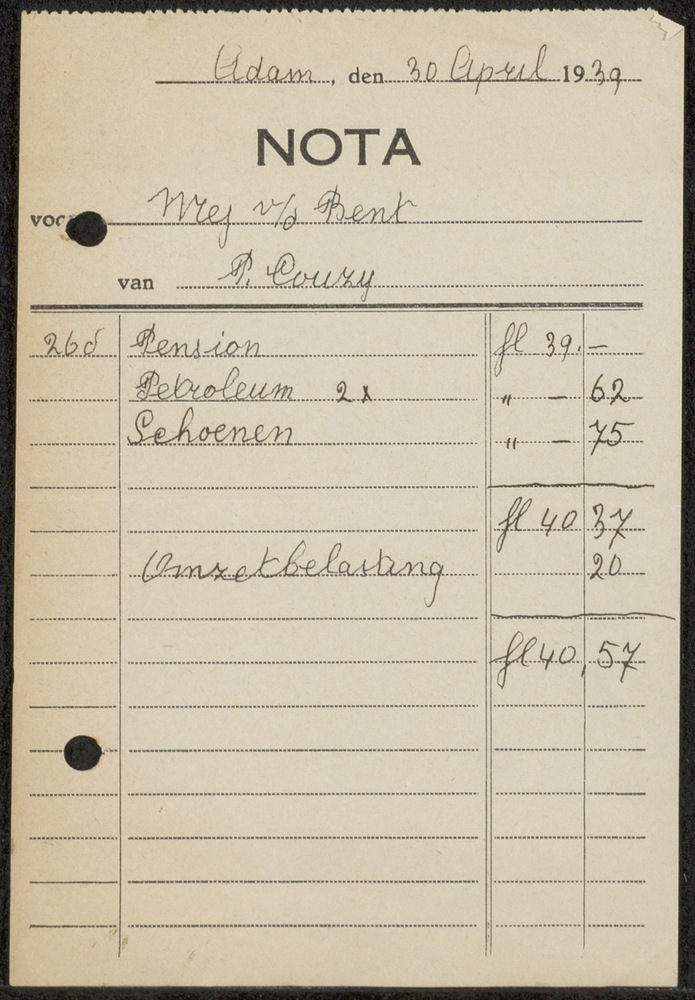 Adam, den 30 April 1939
NOTA
voor Mej v/d Bent
van P. Couzy
26 Pension fl 39.-
Petroleum 2 x " - 62
Schoenen " - 75
fl 40 37
Omzetbelasting 20
fl 40,57